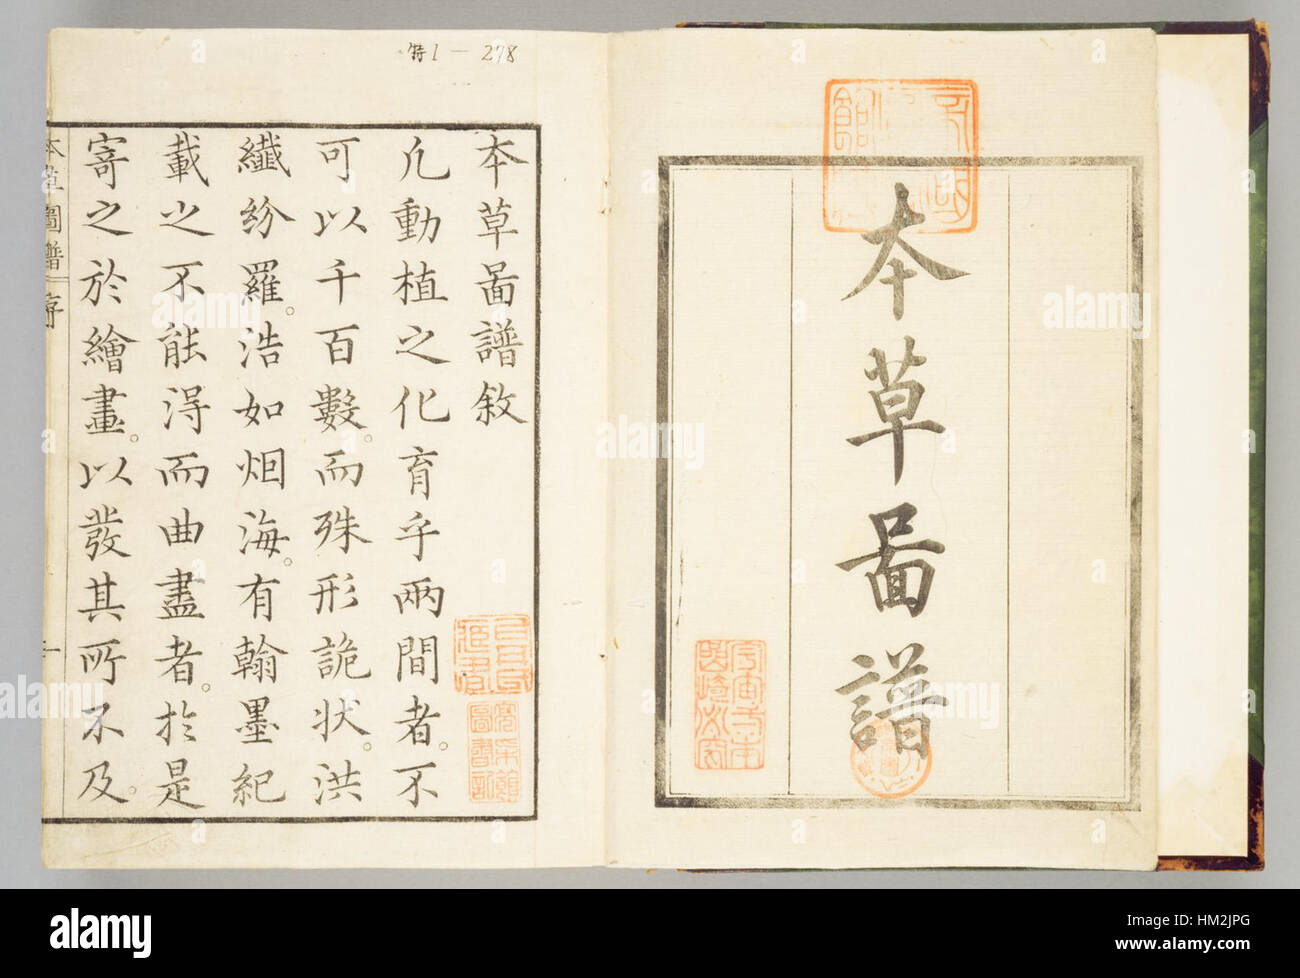 本草啚譜
特1－278
本草啚譜敘
凢動植之化育乎兩間者。不
可以千百數。而殊形詭状。洪
纎紛羅。浩如烟海。有翰墨紀
載之不能淂而曲盡者。於是
寄之於繪畫。以發其所不及。
本草圖譜 序
一
alamy
alamy
Image ID: HM2JPG
www.alamy.com